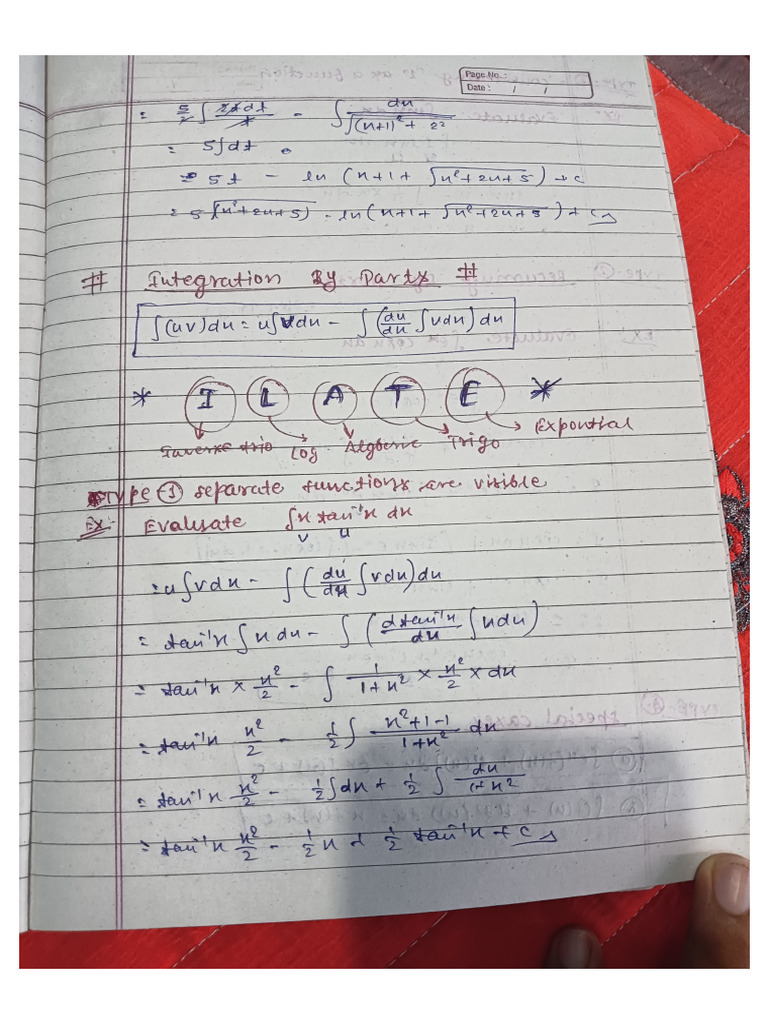 Page No.:
Date: / /
= 5/2 ∫ 2t dt/t - ∫ dx/√((x+1)² + 2²)
= 5∫dt
= 5t - ln (x+1+ √x²+2x+5) + c
= 5√(x²+2x+5) - ln(x+1+ √x²+2x+5) + c
# Integration By Parts #
∫(uv)dx = u∫vdx - ∫(du/dx ∫vdx)dx
* I L A T E *
Inverse trio Log Algberic Trigo Expontial
TYPE-1 separate functions are visible
Ex:- Evaluate ∫x tan⁻¹x dx
v u
= u∫vdx - ∫(du/dx ∫vdx)dx
= tan⁻¹x ∫x dx - ∫(d tan⁻¹x/dx ∫xdx)
= tan⁻¹x × x²/2 - ∫ 1/1+x² × x²/2 × dx
= tan⁻¹x x²/2 - 1/2 ∫ x²+1-1/1+x² dx
= tan⁻¹x x²/2 - 1/2 ∫dx + 1/2 ∫ dx/1+x²
= tan⁻¹x x²/2 - 1/2 x + 1/2 tan⁻¹x + c